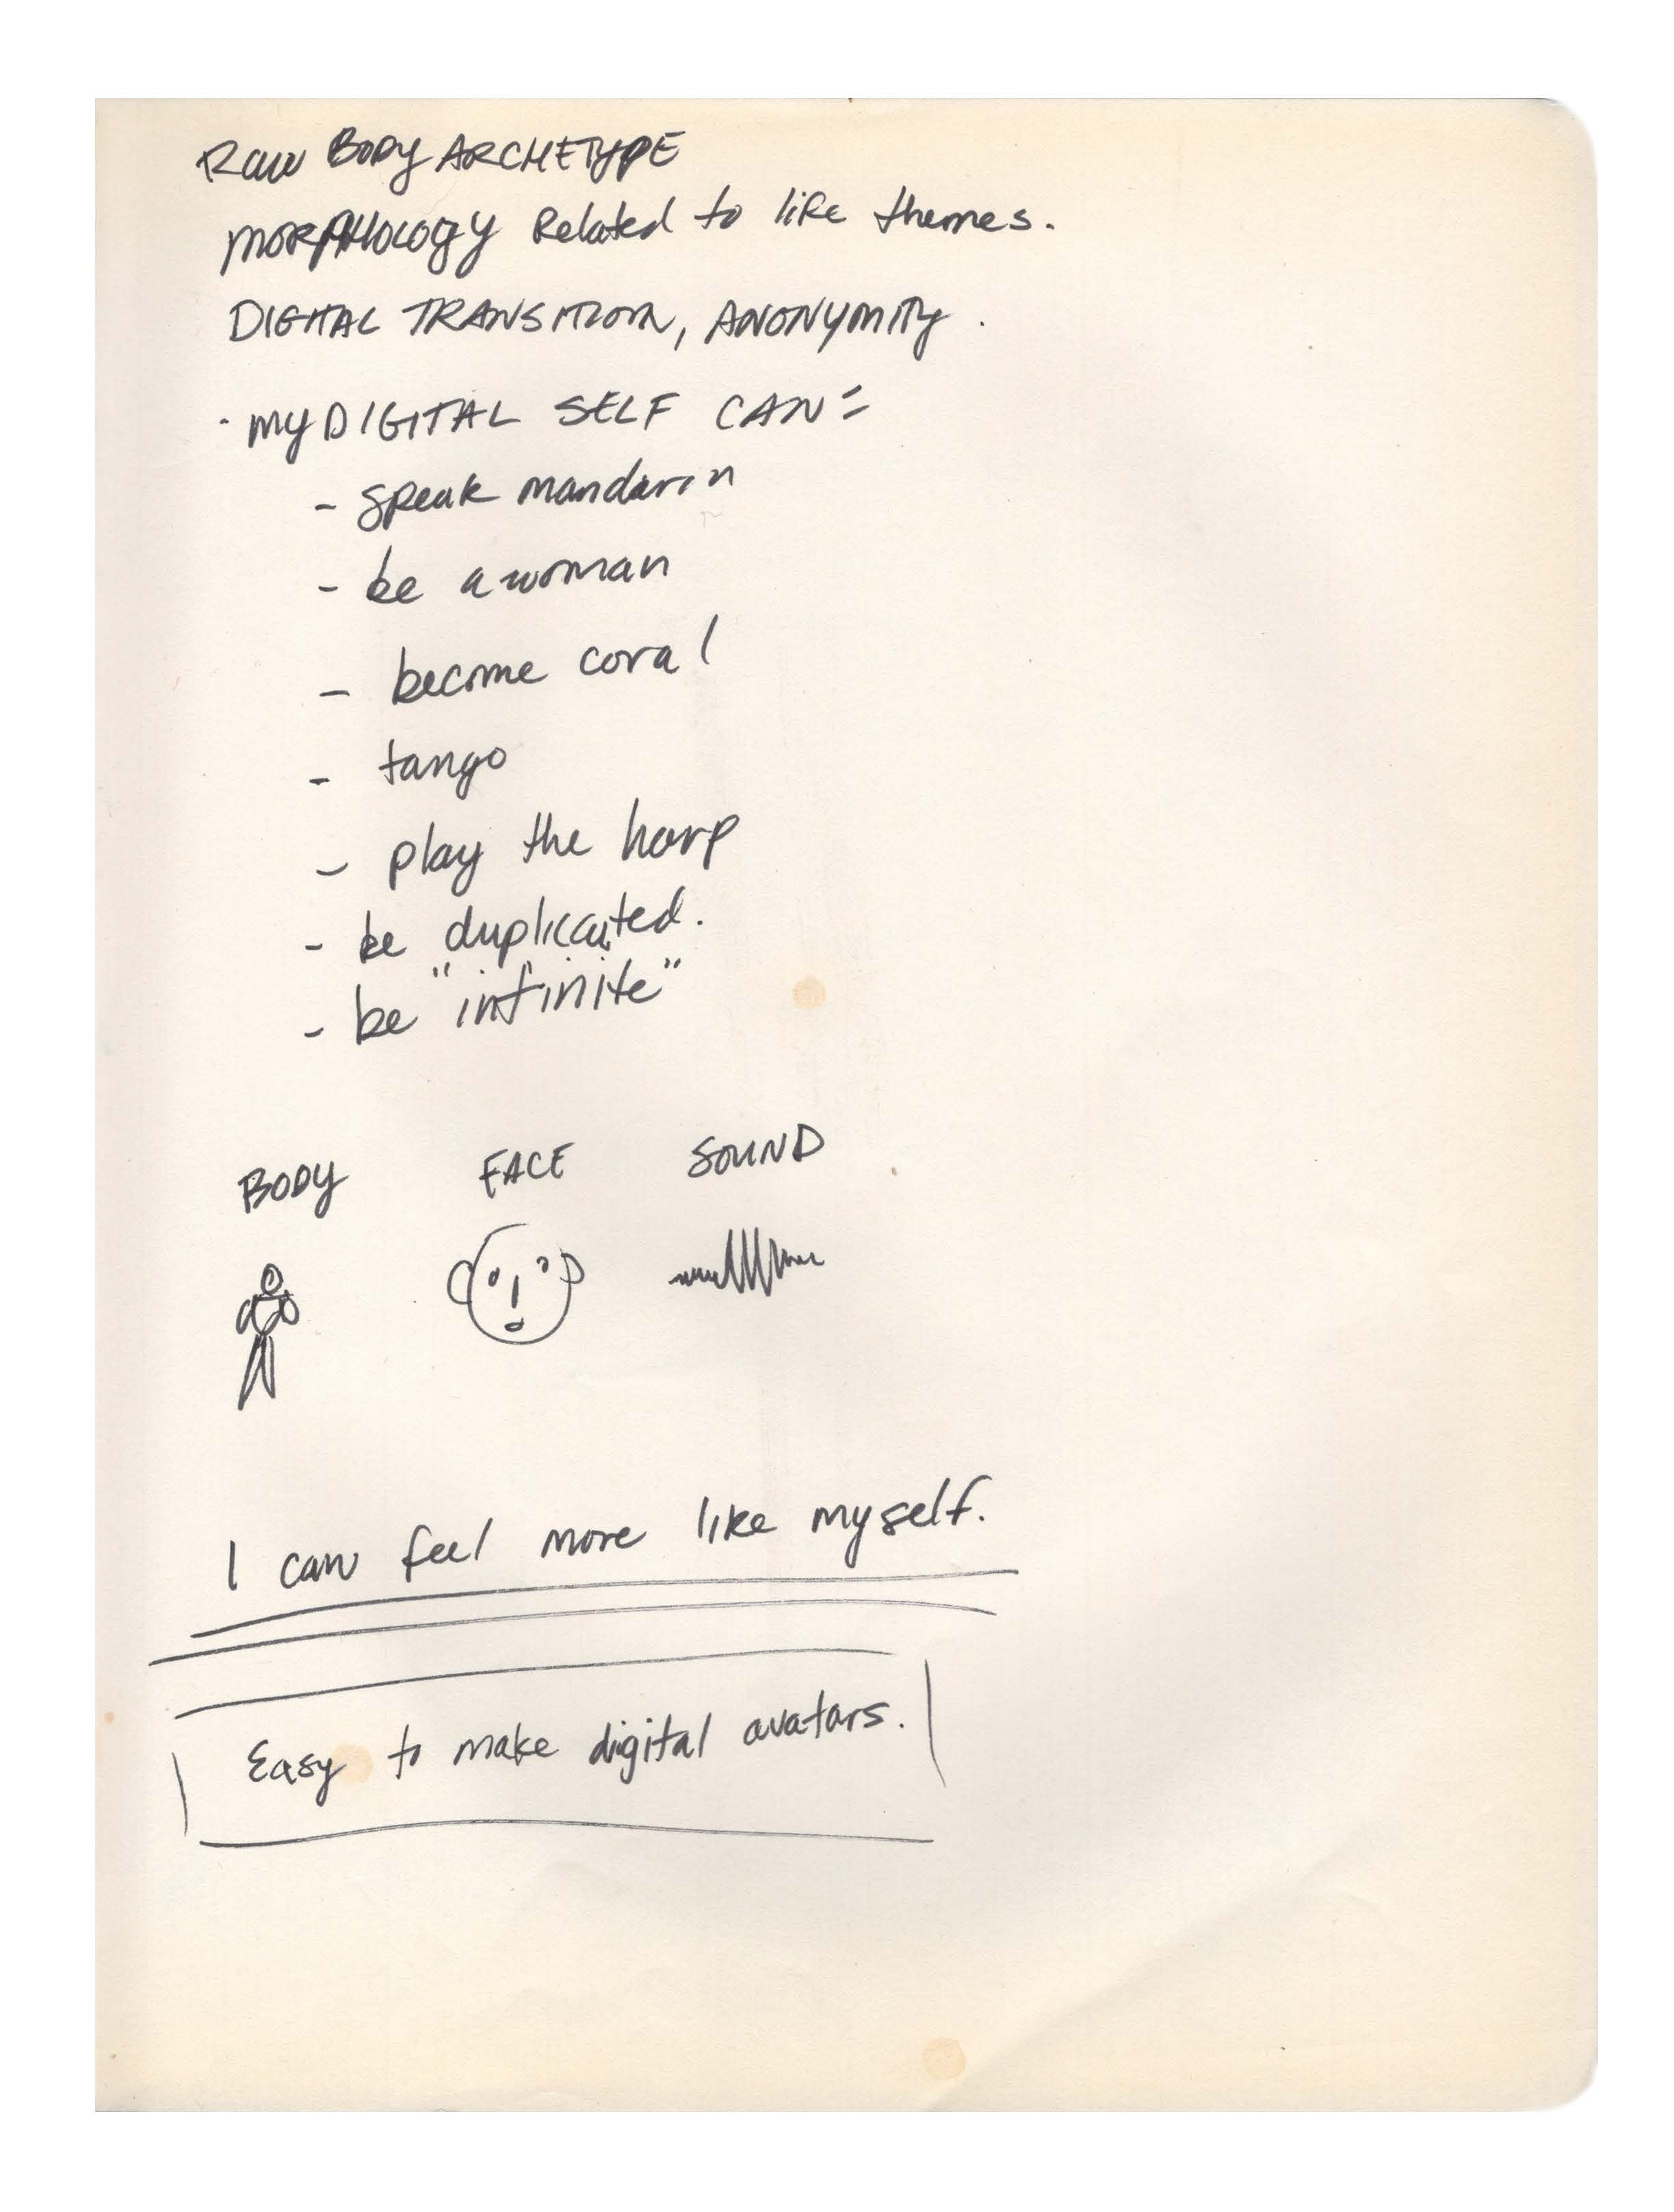 RAW BODY ARCHETYPE
MORPHOLOGY Related to like themes.
DIGITAL TRANSITION, ANONYMITY.
· MY DIGITAL SELF CAN:
- speak mandarin
- be a woman
- become coral
- tango
- play the harp
- be duplicated.
- be "infinite"
BODY FACE SOUND
I can feel more like myself.
Easy to make digital avatars.